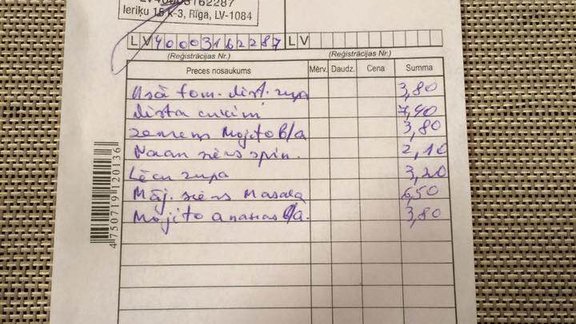 LV40003162287
Ieriķu 15 k-3, Rīga, LV-1084
LV 40003162287 LV
(Reģistrācijas Nr.) (Reģistrācijas Nr.)
Preces nosaukums Mērv. Daudz. Cena Summa
Asā tom. dist. zupa 3,80
7,40
zemens Mojito B/a 3,80
Naan siers spin. 2,10
Lēcu zupa 3,20
Māj. siers Masala 6,50
Mojito ananas B/a. 3,80
4 750719 120136